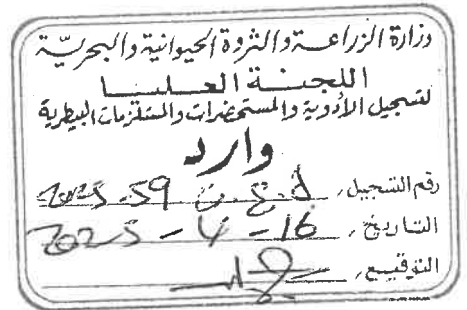 وزارة الزراعة والثروة الحيوانية والبحرية
اللجنة العليا
لتسجيل الأدوية والمستحضرات والمستلزمات البيطرية
وارد
رقم التسجيل، 2025-59
التاريخ، 16 - 4 - 2025
التوقيع،